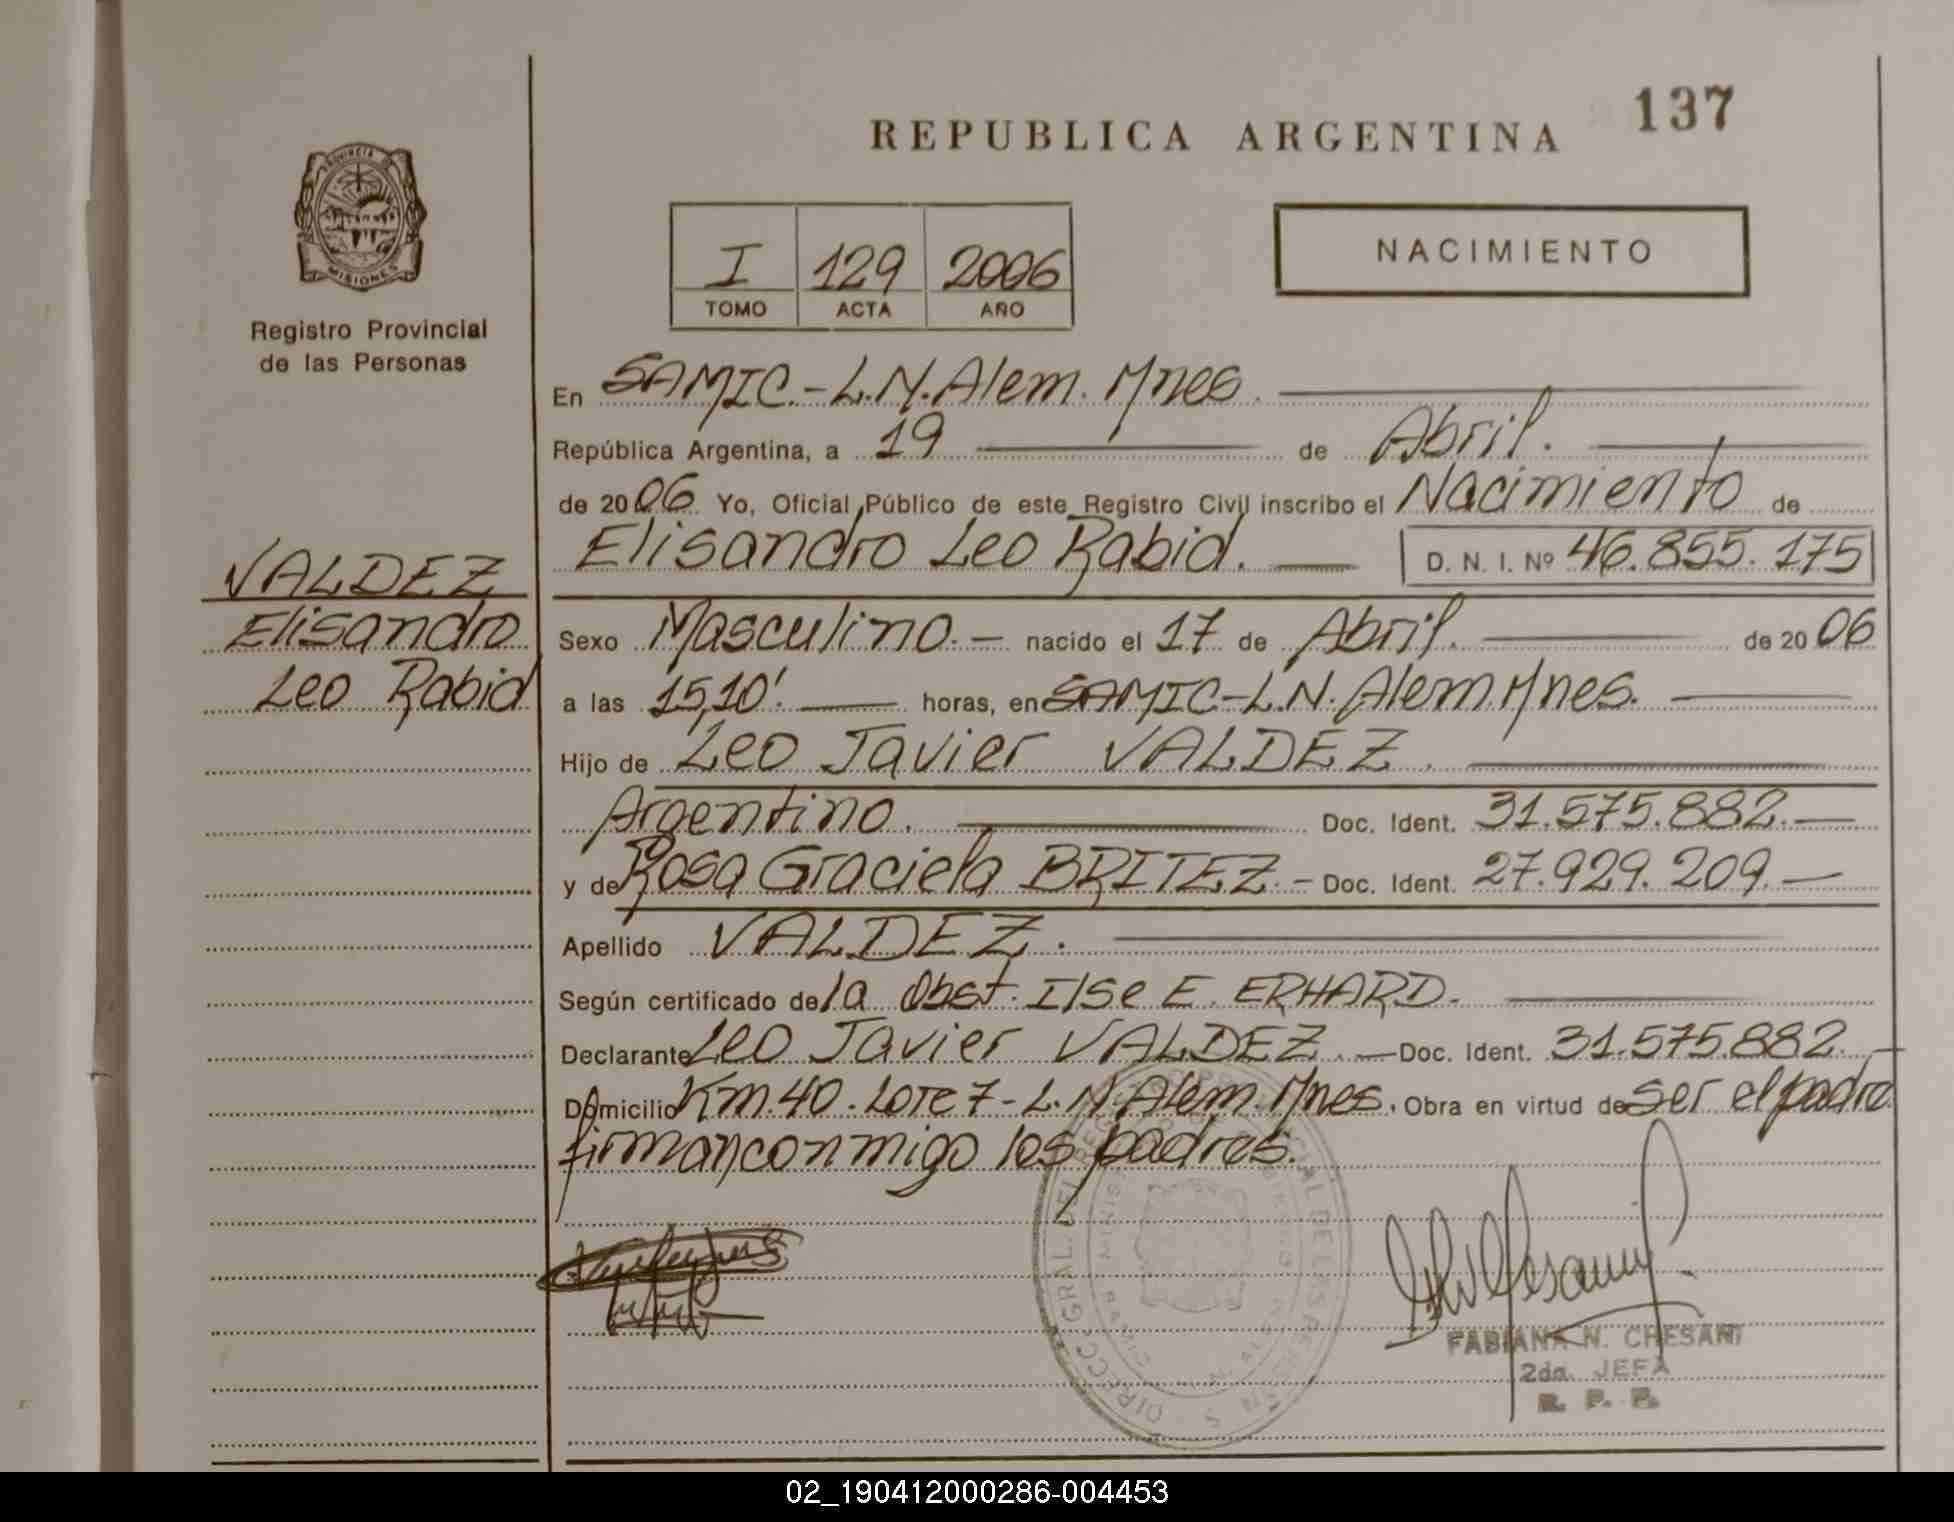 REPUBLICA ARGENTINA
137
PROVINCIA DE
MISIONES
Registro Provincial
de las Personas
I 129 2006
TOMO ACTA AÑO
NACIMIENTO
En SAMIC.-L.N.Alem. Mnes.
República Argentina, a 19 de Abril.
de 2006 Yo, Oficial Público de este Registro Civil inscribo el Nacimiento de
Elisandro Leo Rabid. D. N. I. Nº 46.855.175
VALDEZ
Elisandro
Leo Rabid
Sexo Masculino.- nacido el 17 de Abril. de 2006
a las 15,10'. horas, en SAMIC-L.N.Alem.Mnes.
Hijo de Leo Javier VALDEZ.
Argentino. Doc. Ident. 31.575.882.-
y de Rosa Graciela BRITEZ.- Doc. Ident. 27.929.209.-
Apellido VALDEZ.
Según certificado de la Obst. Ilse E. ERHARD.
Declarante Leo Javier VALDEZ.- Doc. Ident. 31.575.882.-
Domicilio Km.40.Lote 7-L.N.Alem.Mnes. Obra en virtud de ser el padre
firman conmigo los padres.
DIRECC. GRAL. DEL REGISTRO PROVINCIAL DE LAS PERSONAS
FABIANA N. CHESANI
2da. JEFA
R. P. P.
02_190412000286-004453